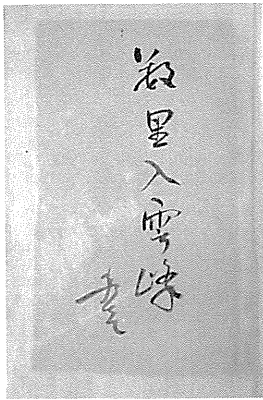 数里入雲峰